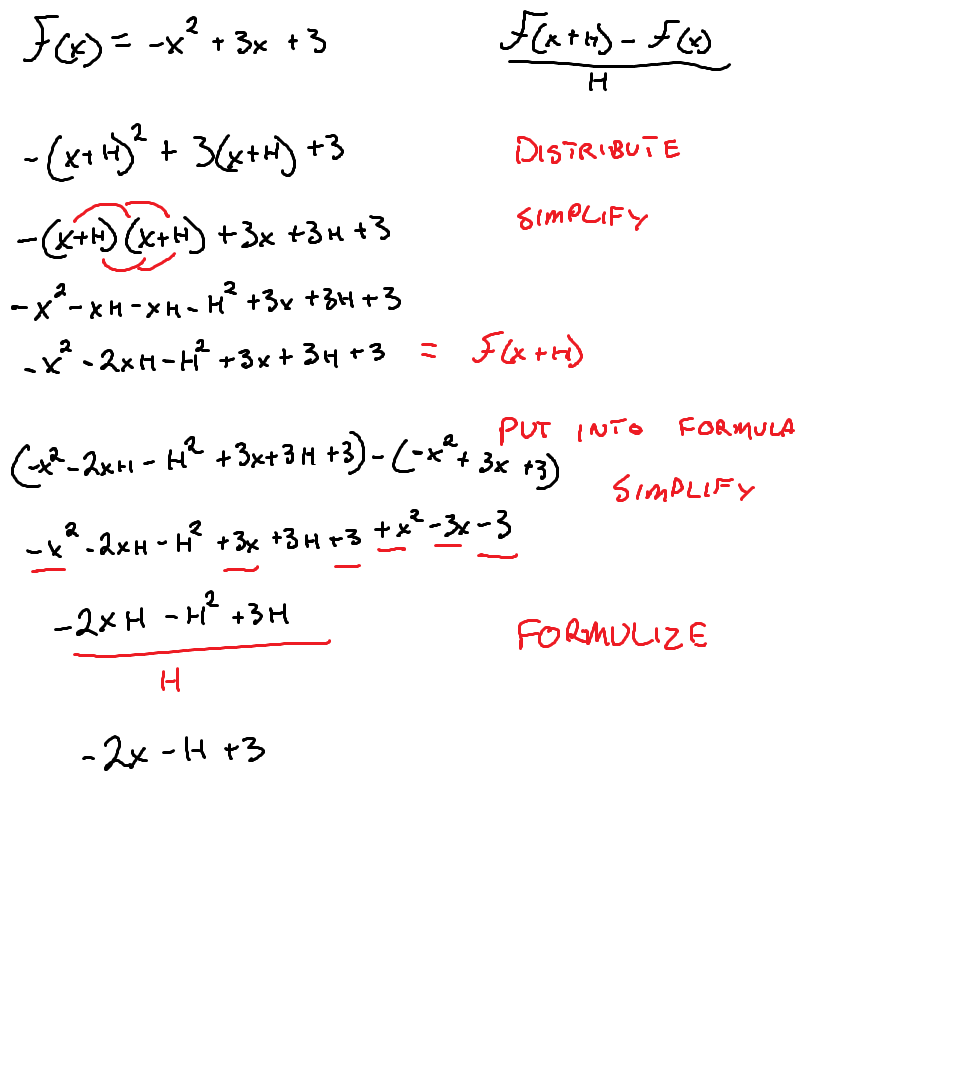 F(x) = -x² + 3x + 3
F(x+H) - F(x)
H
-(x+H)² + 3(x+H) + 3
DISTRIBUTE
SIMPLIFY
-(x+H)(x+H) + 3x + 3H + 3
-x² - xH - xH - H² + 3x + 3H + 3
-x² - 2xH - H² + 3x + 3H + 3 = F(x+H)
PUT INTO FORMULA
(-x² - 2xH - H² + 3x + 3H + 3) - (-x² + 3x + 3)
SIMPLIFY
-x² - 2xH - H² + 3x + 3H + 3 + x² - 3x - 3
-2xH - H² + 3H
H
FORMULIZE
-2x - H + 3